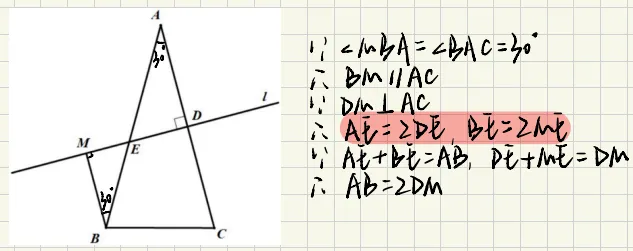 A
30°
D
l
M
E
30°
B
C
∵ ∠MBA=∠BAC=30°
∴ BM∥AC
∵ DM⊥AC
∴ AE=2DE, BE=2ME
∵ AE+BE=AB, DE+ME=DM
∴ AB=2DM